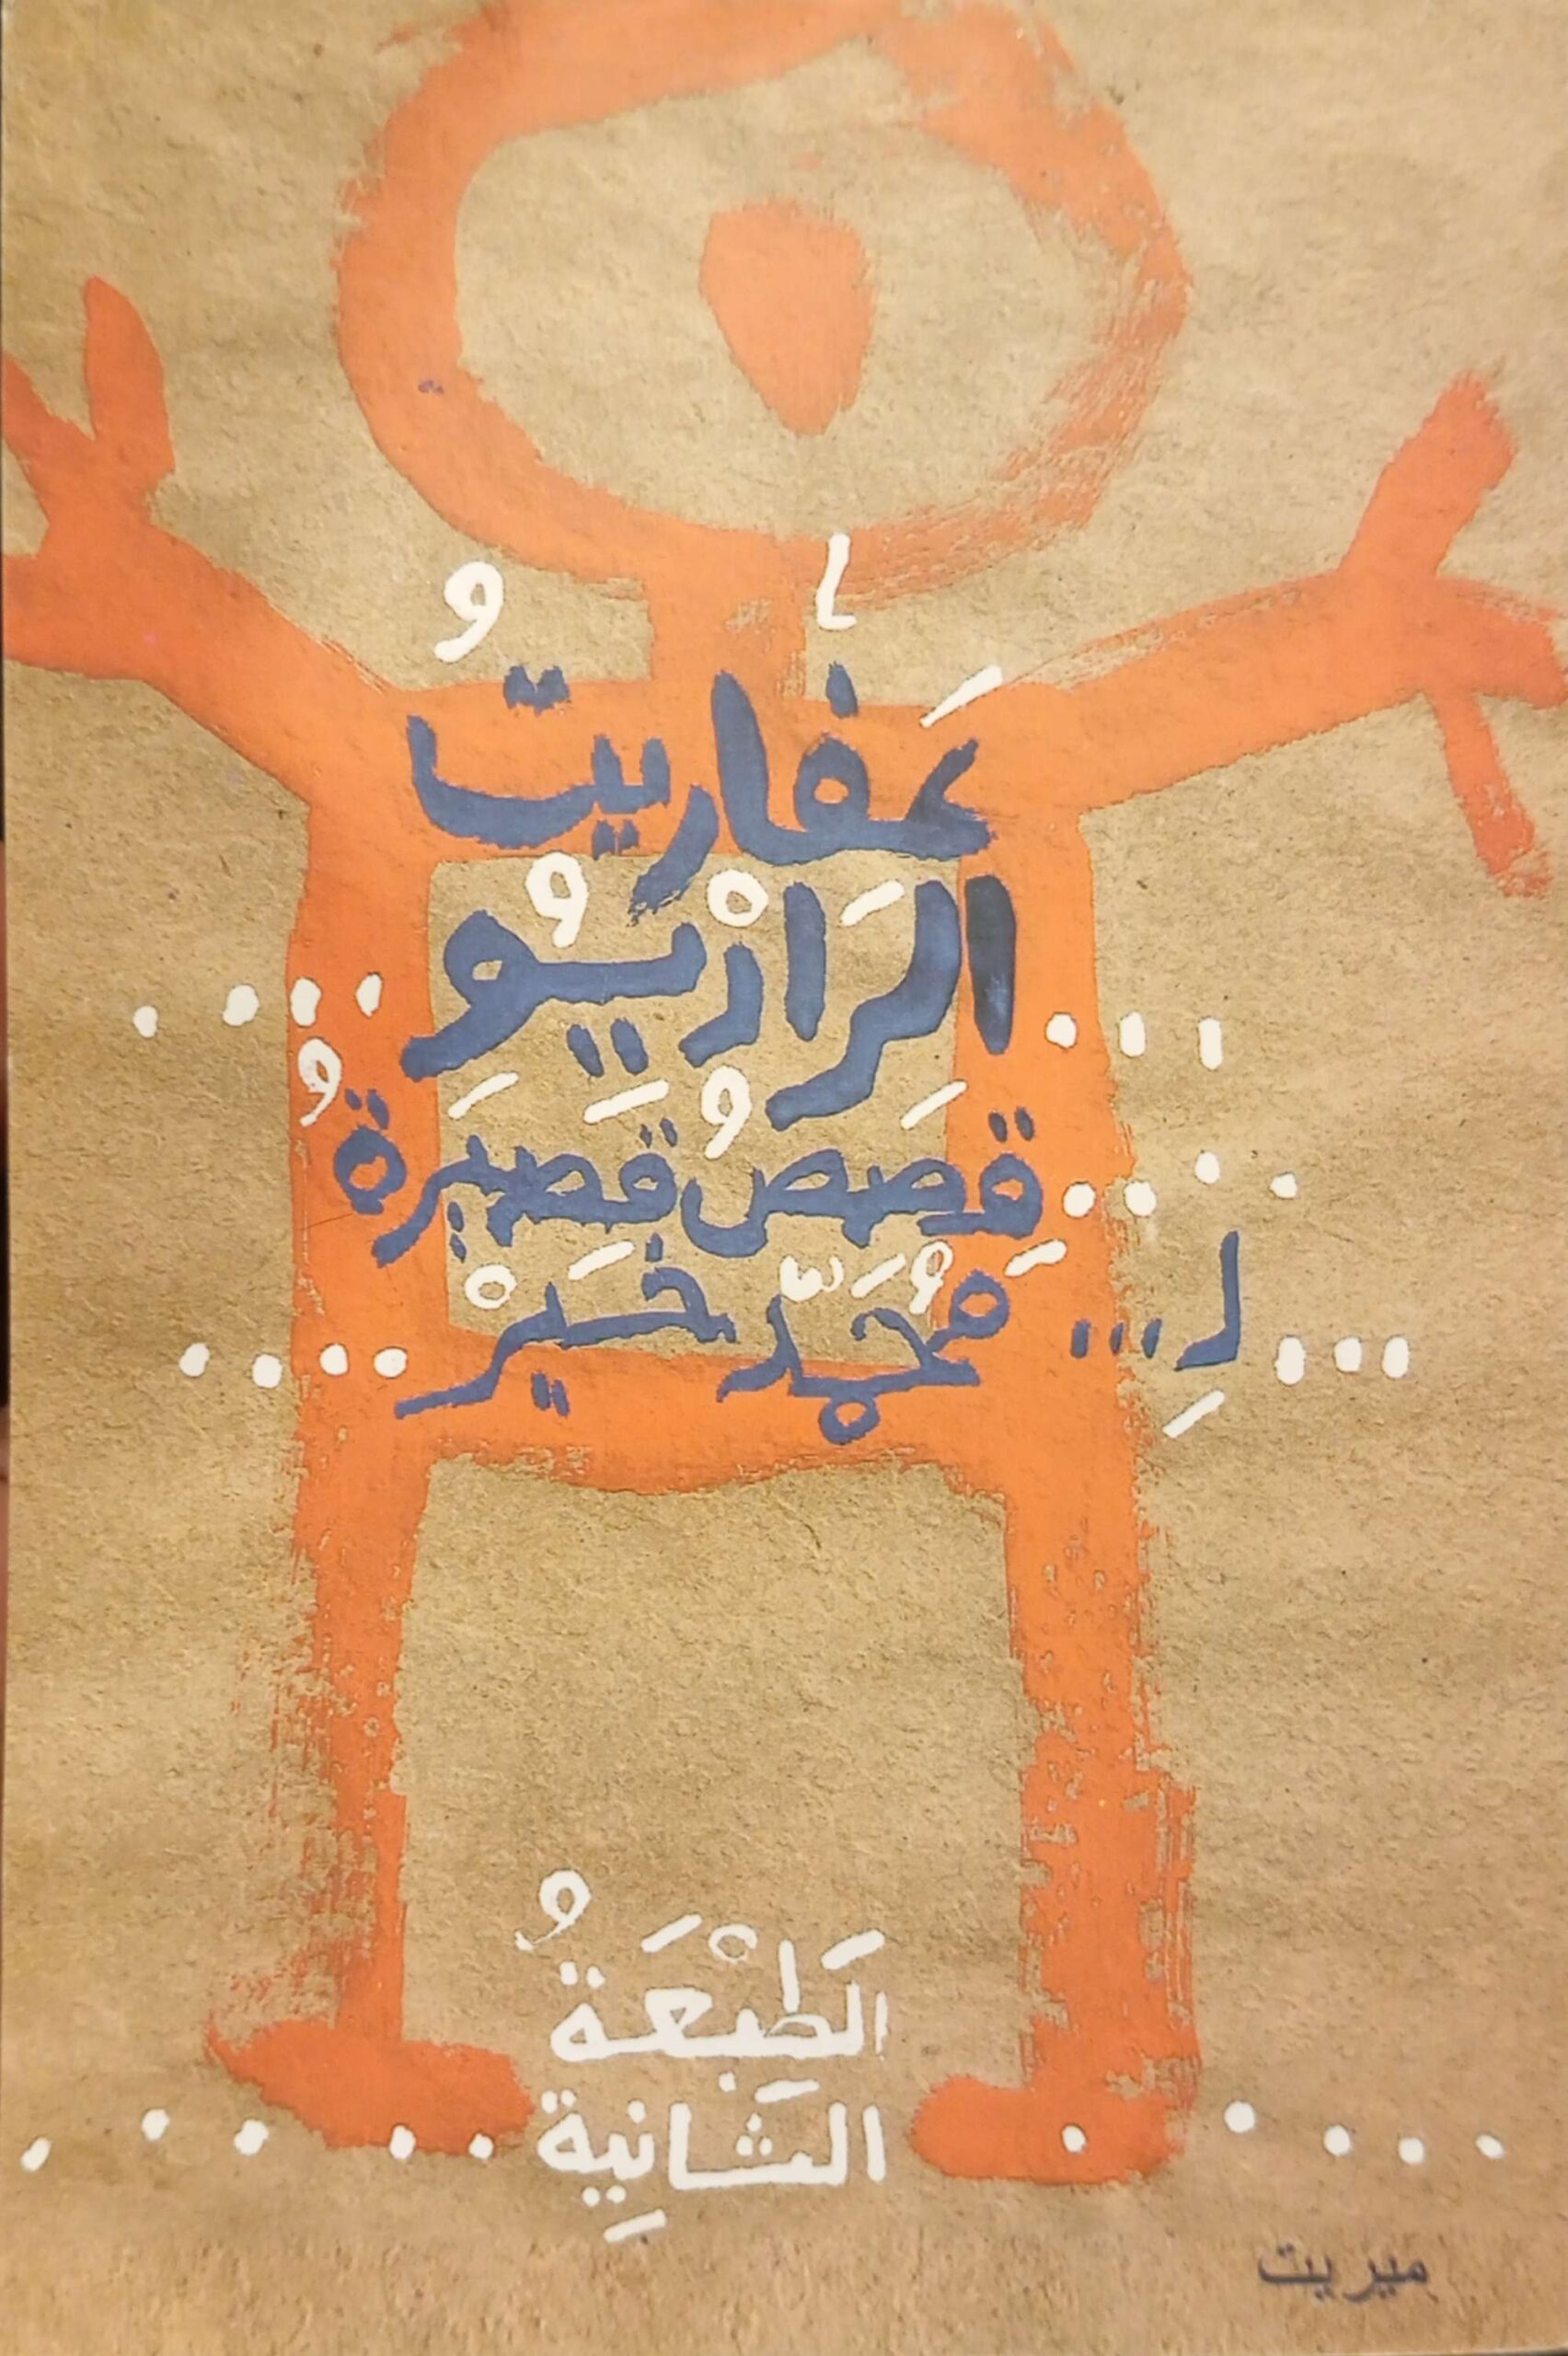 عَفارِيتُ
الرَّادْيُو
قِصَصُ قَصِيرَةُ
لِ... مُحَمَّد خَيْر
الطَبْعَةُ
الثَانِية
ميريت